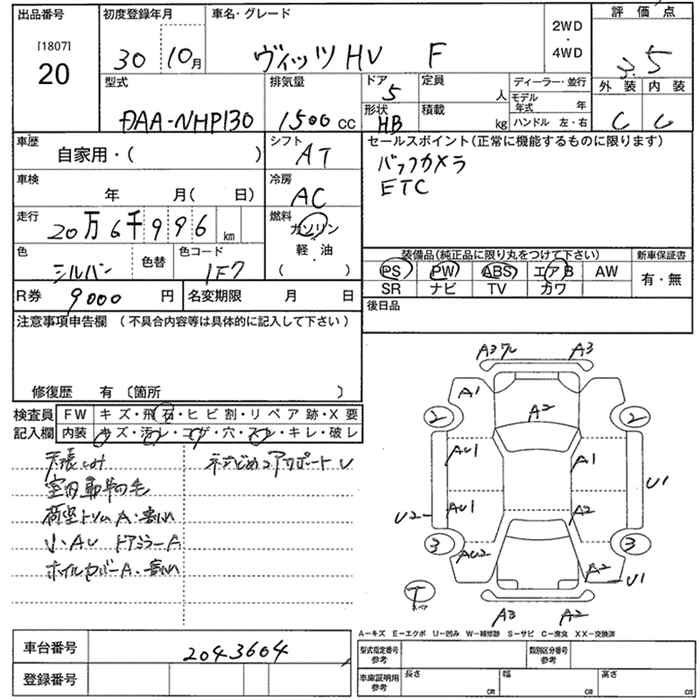 出品番号
[1807]
20
初度登録年月
30 10月
車名・グレード
ヴィッツ HV F
2WD
・
4WD
評価点
3.5
外装 内装
C C
型式
DAA-NHP130
排気量
1500 cc
ドア
5
形状
HB
定員
人
積載
kg
ディーラー・並行
モデル年式 年
ハンドル 左・右
車歴
自家用・( )
シフト
AT
車検
年 月( 日)
冷房
AC
走行
20万6千996 km
燃料
ガソリン
軽・油
( )
色
シルバー
色替
色コード
1F7
R券
9000 円
名変期限 月 日
セールスポイント(正常に機能するものに限ります)
バックカメラ
ETC
装備品(純正品に限り丸をつけて下さい)
PS PW ABS エアB AW
SR ナビ TV カワ
新車保証書
有・無
後日品
注意事項申告欄 (不具合内容等は具体的に記入して下さい)
修復歴 有〔箇所 〕
検査員記入欄
FW キズ・飛石・ヒビ割・リペア跡・X要
内装 キズ・汚レ・コゲ・穴・スレ・キレ・破レ
天張しみ
室内
荷室トリムA
小AU ドアミラーA
ホイルカバーA
A3 ワレ A3
A1
A2
2 2
AU1 A1
U1
AU1 A2
U2
3 3
AU2 A2
U1
T
A3 A2
A-キズ E-エクボ U-凹み W-補修跡 S-サビ C-腐食 XX-交換済
車台番号
2043604
登録番号
型式指定番号
参考
類別区分番号
参考
車庫証明用
参考
長さ cm
幅 cm
高さ cm